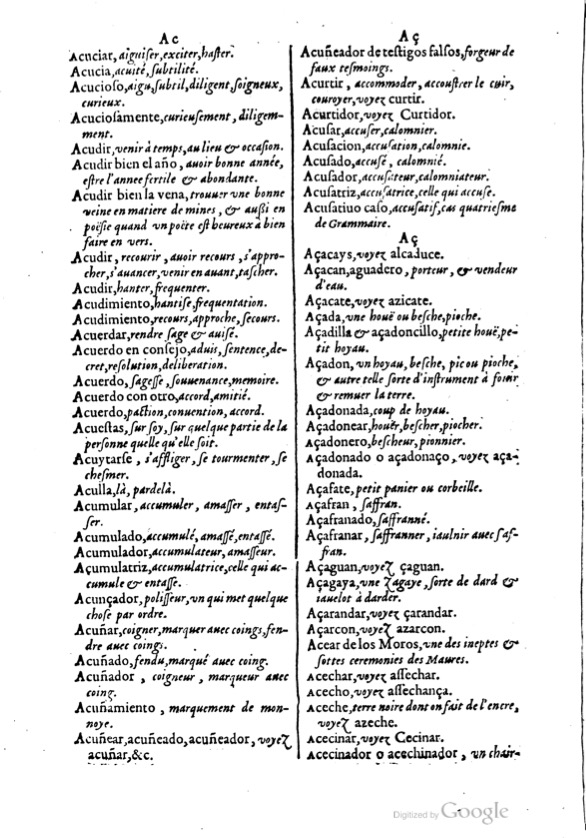 Ac
Acuciar, aiguiser, exciter, haster.
Acucia, acuité, subtilité.
Acucioso, aigu, subtil, diligent, soigneux,
curieux.
Acuciosamente, curieusement, diligem-
ment.
Acudir, venir à temps, au lieu & occasion.
Acudir bien el año, auoir bonne année,
estre l'annee fertile & abondante.
Acudir bien la vena, trouuer une bonne
veine en matiere de mines, & aussi en
poësie quand un poëte est heureux à bien
faire en vers.
Acudir, recourir, auoir recours, s'appro-
cher, s'auancer, venir en auant, tascher.
Acudir, hanter, frequenter.
Acudimiento, hantise, frequentation.
Acudimiento, recours, approche, secours.
Acuerdar, rendre sage & auisé.
Acuerdo en consejo, aduis, sentence, de-
cret, resolution, deliberation.
Acuerdo, sagesse, souuenance, memoire.
Acuerdo con otro, accord, amitié.
Acuerdo, paction, conuention, accord.
Acuestas, sur soy, sur quelque partie de la
personne quelle qu'elle soit.
Acuytarse, s'affliger, se tourmenter, se
chesmer.
Aculla, là, pardelà.
Acumular, accumuler, amasser, entas-
ser.
Acumulado, accumulé, amassé, entassé.
Acumulador, accumulateur, amasseur.
Açumulatriz, accumulatrice, celle qui ac-
cumule & entasse.
Acunçador, polisseur, un qui met quelque
chose par ordre.
Acuñar, coigner, marquer auec coings, fen-
dre auec coings.
Acuñado, fendu, marqué auec coing.
Acuñador, coigneur, marqueur auec
coing.
Acuñamiento, marquement de mon-
noye.
Acuñear, acuñeado, acuñeador, voyez
acuñar, &c.
Aç
Acuñeador de testigos falsos, forgeur de
faux tesmoings.
Acurtir, accommoder, accoustrer le cuir,
couroyer, voyez curtir.
Acurtidor, voyez Curtidor.
Acusar, accuser, calomnier.
Acusacion, accusation, calomnie.
Acusado, accusé, calomnié.
Acusador, accusateur, calomniateur.
Acusatriz, accusatrice, celle qui accuse.
Acusatiuo caso, accusatif, cas quatriesme
de Grammaire.
Aç
Açacays, voyez alcaduce.
Açacan, aguadero, porteur, & vendeur
d'eau.
Açacate, voyez azicate.
Açada, une houë ou besche, pioche.
Açadilla & açadoncillo, petite houë, pe-
tit hoyau.
Açadon, un hoyau, besche, pic ou pioche,
& autre telle sorte d'instrument à fouir
& remuer la terre.
Açadonada, coup de hoyau.
Açadonear, houër, bescher, piocher.
Açadonero, bescheur, pionnier.
Açadonado o açadonaço, voyez aça-
donada.
Açafate, petit panier ou corbeille.
Açafran, saffran.
Açafranado, saffranné.
Açafranar, saffranner, iaulnir auec saf-
fran.
Açaguan, voyez çaguan.
Açagaya, une Zagaye, sorte de dard &
iauelot à darder.
Açarandar, voyez çarandar.
Açarcon, voyez azarcon.
Acear de los Moros, une des ineptes &
sottes ceremonies des Maures.
Acechar, voyez assechar.
Acecho, voyez assechança.
Aceche, terre noire dont on fait de l'encre,
voyez azeche.
Acecinar, voyez Cecinar.
Acecinador o acechinador, un chair-
Digitized by Google